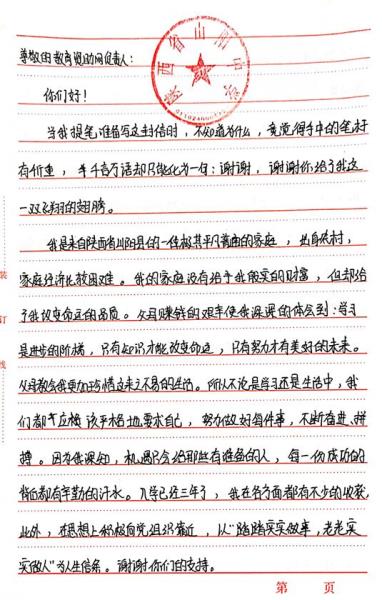 尊敬的教育资助网负责人：
陕西省山阳中学
你们好！
当我提笔准备写这封信时，不知道为什么，竟觉得手中的笔好
有份重，千千言万语却只能化为一句：谢谢，谢谢你给了我这
一双飞翔的翅膀。
我是来自陕西省山阳县的一个极其平凡普通的家庭，出自农村，
家庭经济比较困难。我的家庭没有给予我殷实的财富，但却给
了我改变命运的品质。父母赚钱的艰辛使我深深的体会到：学习
是进步的阶梯，只有知识才能改变命运，只有努力才有美好的未来。
父母教会我更加珍惜这来之不易的生活。所以不论是学习还是生活中，我
们都应该严格地要求自己，努力做好每件事，不断奋进、拼
搏。因为我深知，机遇只会给那些有准备的人，每一份成功的
背面都有辛勤的汗水。入学已经三年了，我在各方面都有不少的收获，
此外，在思想上积极向党组织靠近，以“踏踏实实做事，老老实
实做人”为人生信条。谢谢你们的支持。
装
订
线
第 页